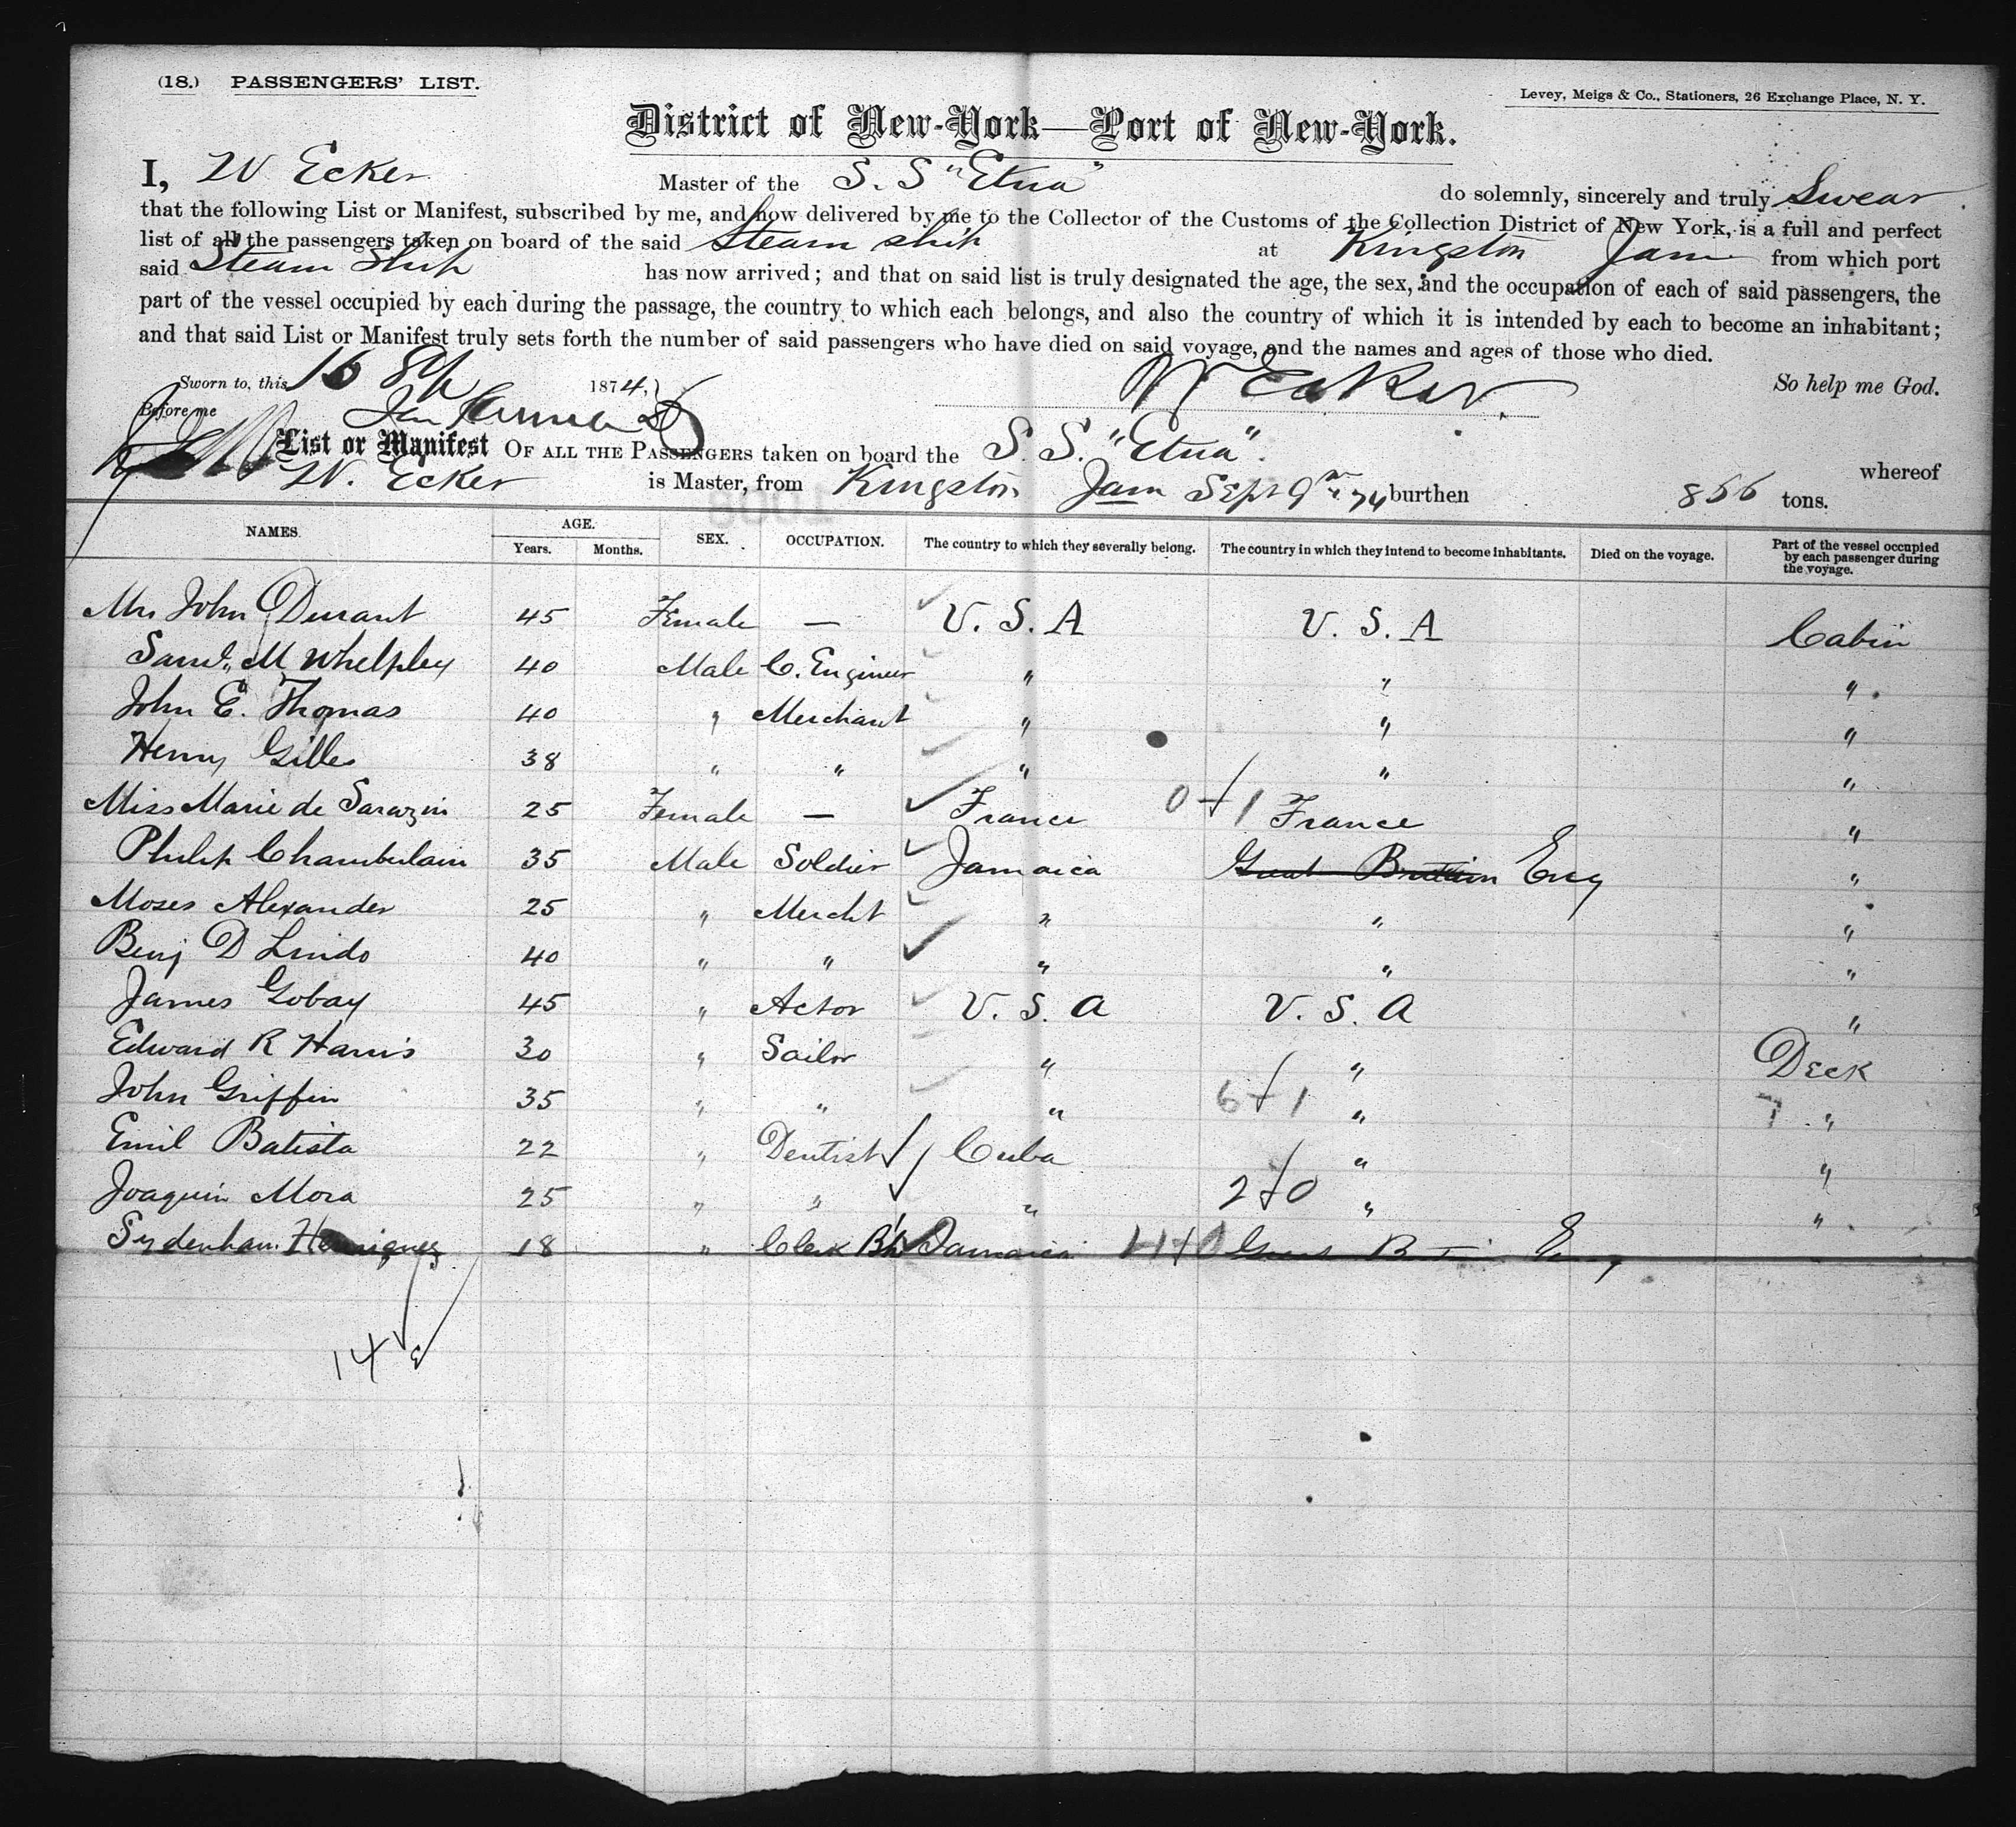 (18.) PASSENGERS' LIST.
Levey, Meigs & Co., Stationers, 26 Exchange Place, N. Y.
District of New-York—Port of New-York.
I, W Ecker Master of the S. S "Etna" do solemnly, sincerely and truly Swear
that the following List or Manifest, subscribed by me, and now delivered by me to the Collector of the Customs of the Collection District of New York, is a full and perfect
list of all the passengers taken on board of the said Steam Ship at Kingston Jam from which port
said Steam Ship has now arrived; and that on said list is truly designated the age, the sex, and the occupation of each of said passengers, the
part of the vessel occupied by each during the passage, the country to which each belongs, and also the country of which it is intended by each to become an inhabitant;
and that said List or Manifest truly sets forth the number of said passengers who have died on said voyage, and the names and ages of those who died.
Sworn to, this 16 1874 So help me God.
Before me W Ecker
List or Manifest OF ALL THE PASSENGERS taken on board the S. S. "Etna". whereof
W. Ecker is Master, from Kingston Jam Sept 9th 74 burthen 856 tons.
NAMES. AGE. Years. Months. SEX. OCCUPATION. The country to which they severally belong. The country in which they intend to become inhabitants. Died on the voyage. Part of the vessel occupied by each passenger during the voyage.
Mrs John Durant 45 Female — U. S. A U. S. A Cabin
Saml. M Whelpley 40 Male C. Engineer " " "
John E. Thomas 40 " Merchant " " "
Henry Gilles 38 " " " " "
Miss Marie de Sarazin 25 Female — France 0+1 France "
Philip Chamberlain 35 Male Soldier Jamaica Great Brittain Eng "
Moses Alexander 25 " Mercht " " "
Benj D Lindo 40 " " " " "
James Gobay 45 " Actor U. S. A U. S. A "
Edward R Harris 30 " Sailor " " Deck
John Griffin 35 " " " 6+1 " 7 "
Emil Batista 22 " Dentist Cuba " "
Joaquin Mora 25 " " " 2+0 " "
Sydenham Henriquez 18 " Clerk Jamaica 4+0
14